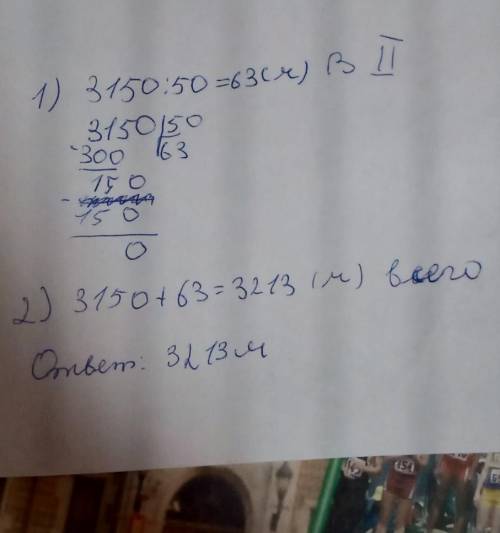 1) 3150:50=63(м) В II
3150 50
-300 63
150
-
150
0
2) 3150+63=3213 (м) всего
Ответ: 3213 м
154